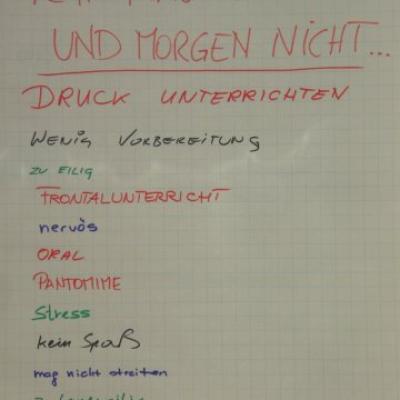 UND MORGEN NICHT...
DRUCK UNTERRICHTEN
WENIG VORBEREITUNG
ZU EILIG
FRONTALUNTERRICHT
nervös
ORAL
PANTOMIME
Stress
kein Spaß
mag nicht streiten